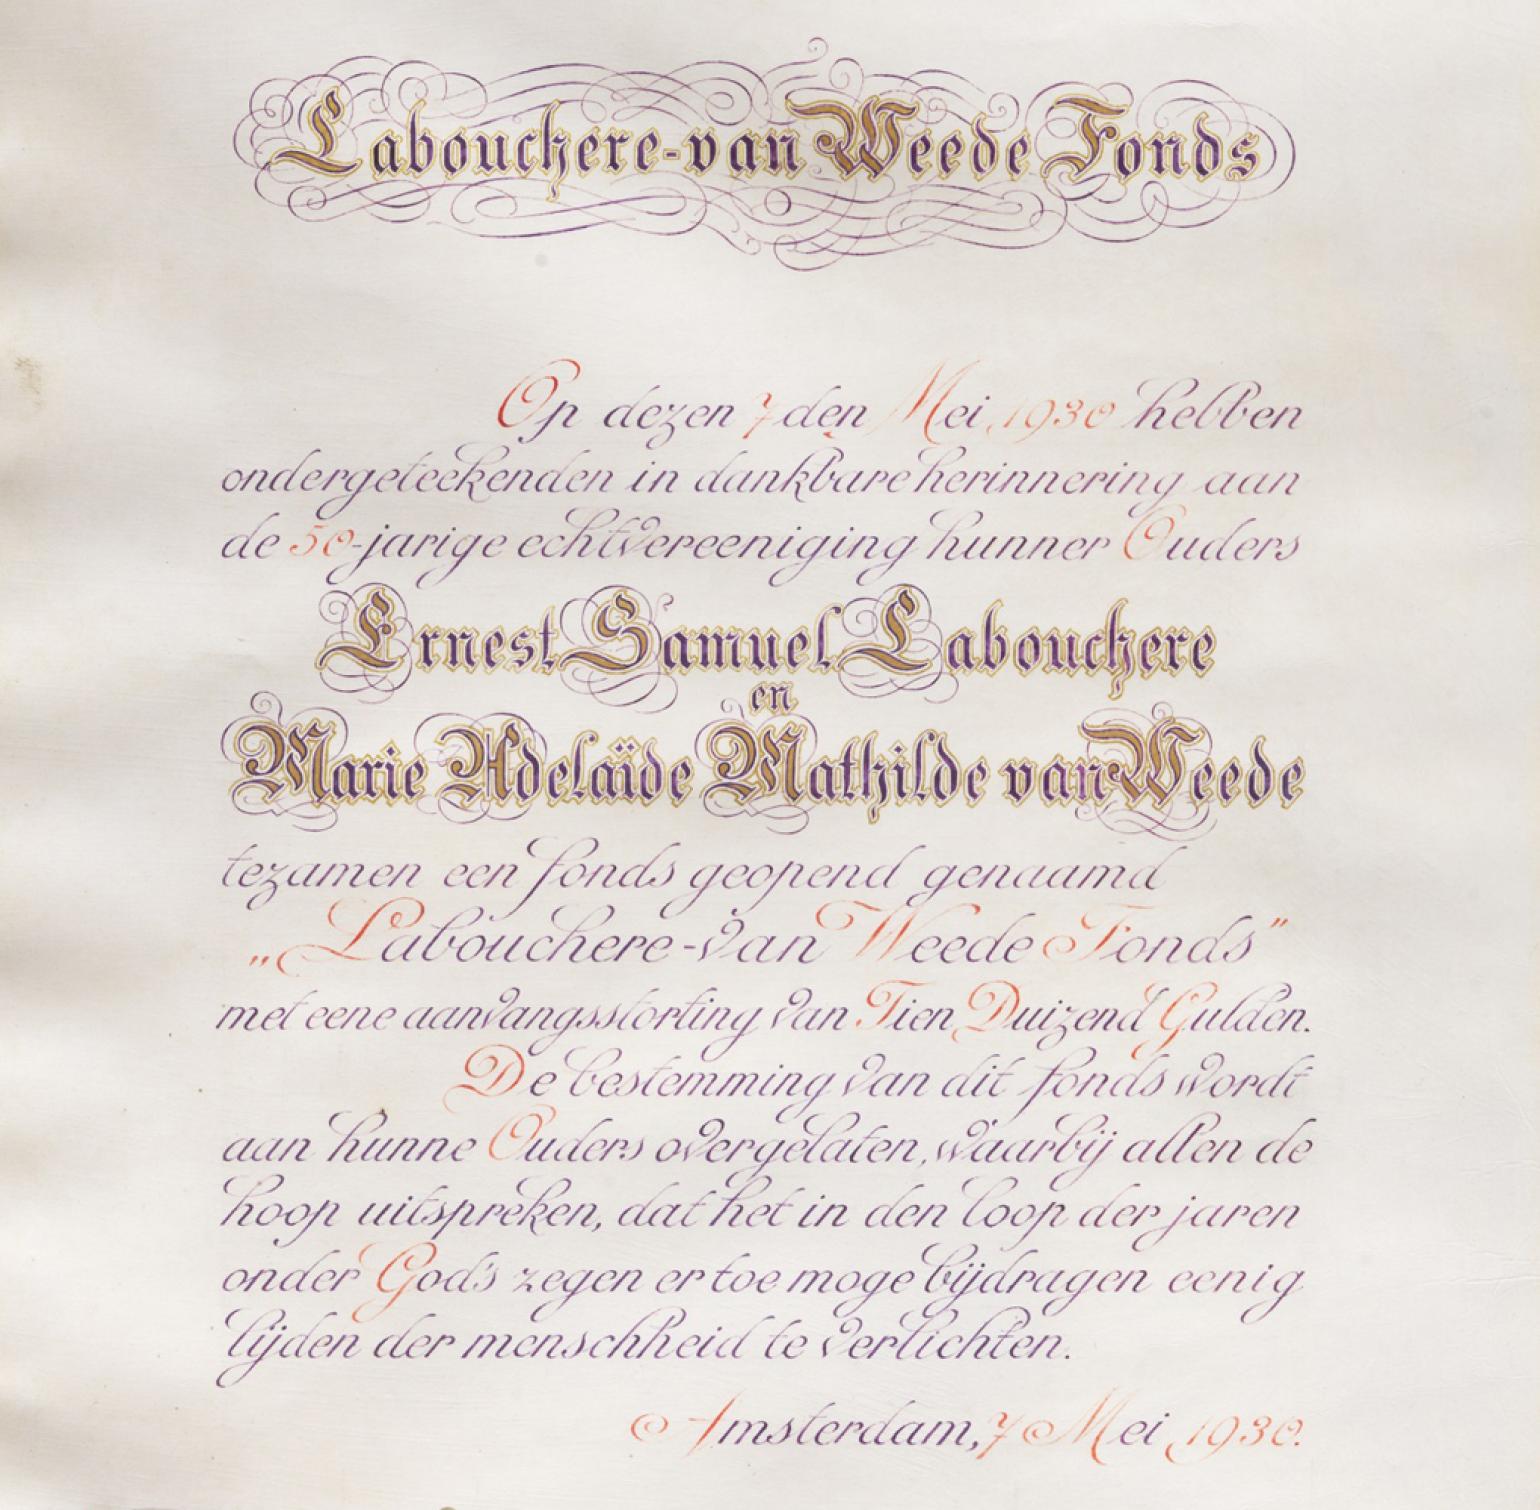 Labouchere-van Weede Fonds
Op dezen 7den Mei 1930 hebben
ondergeteekenden in dankbare herinnering aan
de 50-jarige echtvereeniging hunner Ouders
Ernest Samuel Labouchere
en
Marie Adelaïde Mathilde van Weede
tezamen een fonds geopend genaamd
„Labouchere-van Weede Fonds"
met eene aanvangsstorting van Tien Duizend Gulden.
De bestemming van dit fonds wordt
aan hunne Ouders overgelaten, waarbij allen de
hoop uitspreken, dat het in den loop der jaren
onder Gods zegen er toe moge bijdragen eenig
lijden der menschheid te verlichten.
Amsterdam, 7 Mei 1930.